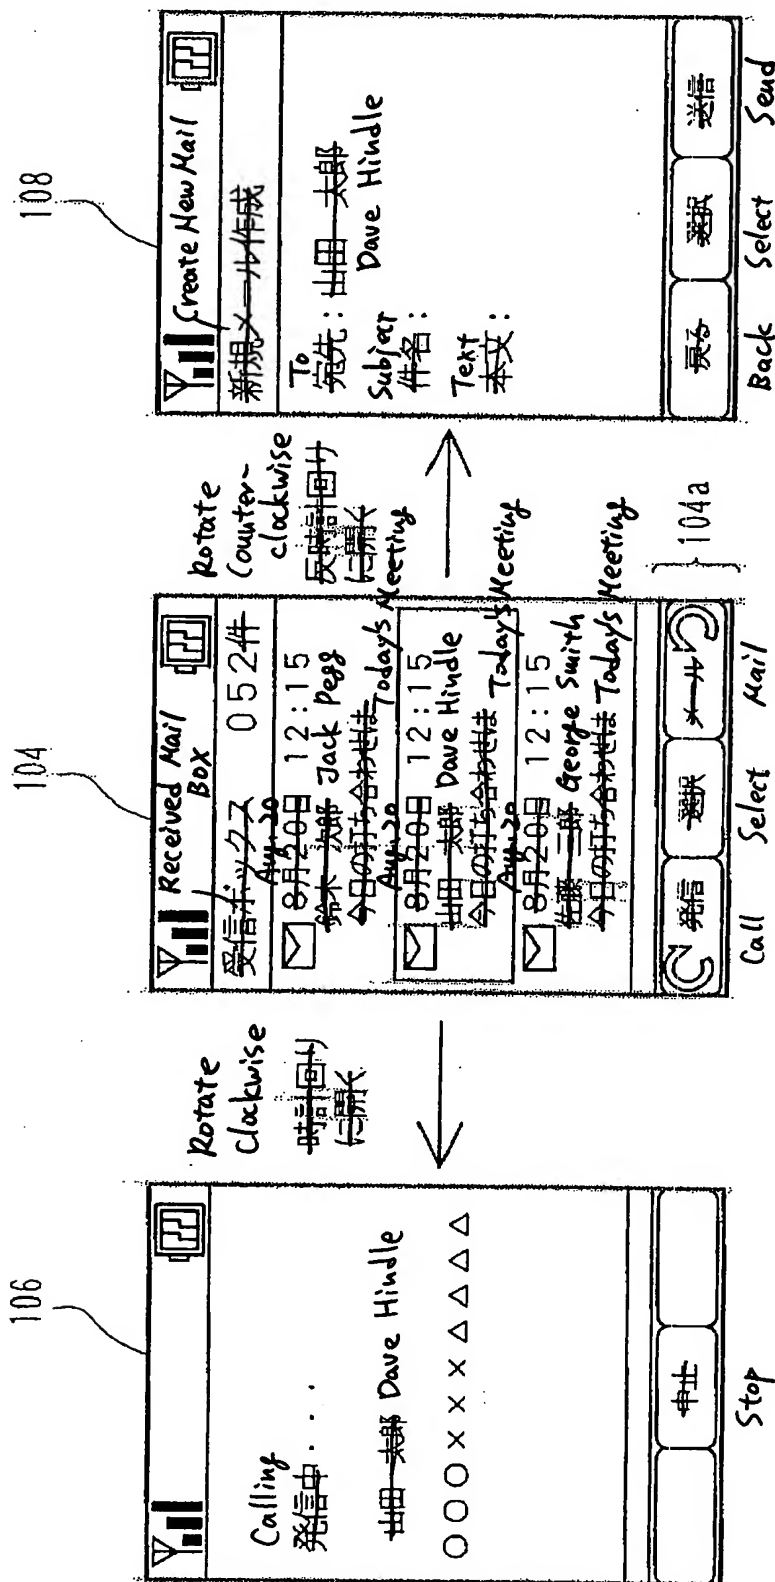 106
Calling
発信中・・・
山田 太郎 Dave Hindle
○○○×××△△△△
中止
Stop
Rotate
Clockwise
時計回り
に開く
104
Received Mail
Box
受信ボックス 052件
Aug. 20
8月20日 12:15
鈴木 次郎 Jack Pegg
今日の打ち合わせは Today's Meeting
Aug. 20
8月20日 12:15
山田 太郎 Dave Hindle
今日の打ち合わせは Today's Meeting
Aug. 20
8月20日 12:15
佐藤 三郎 George Smith
今日の打ち合わせは Today's Meeting
発信 選択 メール
Call Select Mail
104a
Rotate
Counter-
clockwise
反時計回り
に開く
108
Create New Mail
新規メール作成
To
宛先:山田 太郎
Dave Hindle
Subject
件名:
Text
本文:
戻る 選択 送信
Back Select Send